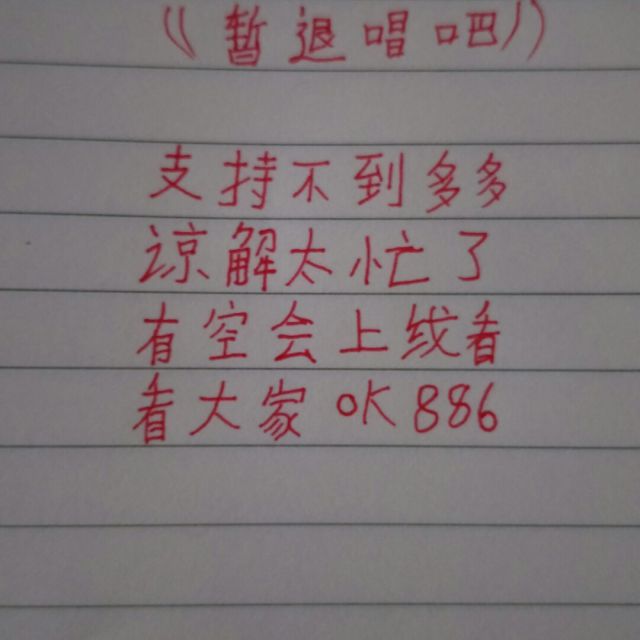 《暂退唱吧》
支持不到多多
谅解太忙了
有空会上线看
看大家OK886